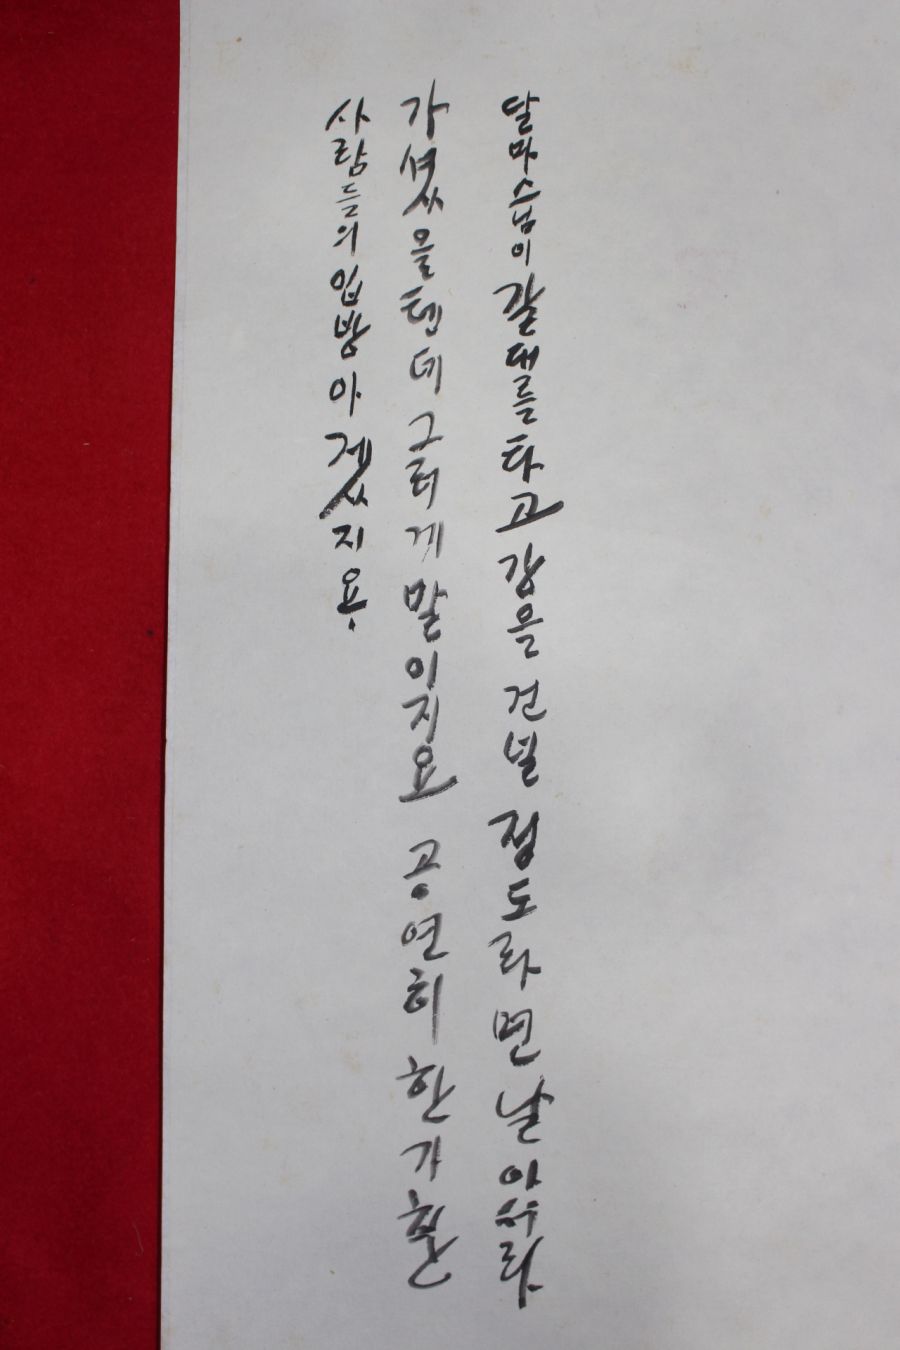 달마스님이 갈대를 타고 강을 건널 정도라면 날아서라
가셨을텐데 그러게 말이지요 공연히 한가한
사람들의 입방아겠지요.